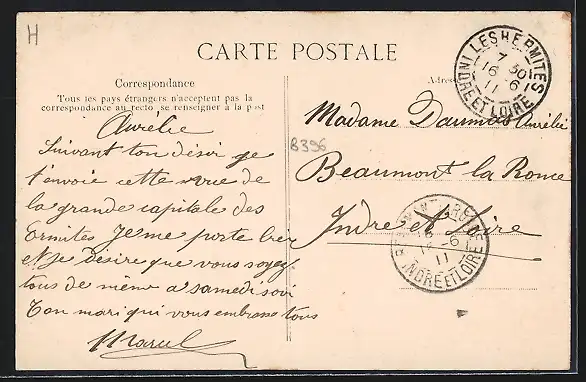 H
CARTE POSTALE
Correspondance
Tous les pays étrangers n'acceptent pas la
correspondance au recto se renseigner à la post
Aurélie
Suivant ton désir je
t'envoie cette vue de
la grande capitale des
Ermites Je me porte bien
et Je désire que vous soyez
tous de même a samedi soir
Ton mari qui vous embrasse tous
Marcel
B396
Adres
Madame Daumas Aurélie
Beaumont la Ronce
Indre et Loire
LES HERMITES
7 30
16 6
11
INDRE ET LOIRE
16 -6
11
INDRE ET LOIRE